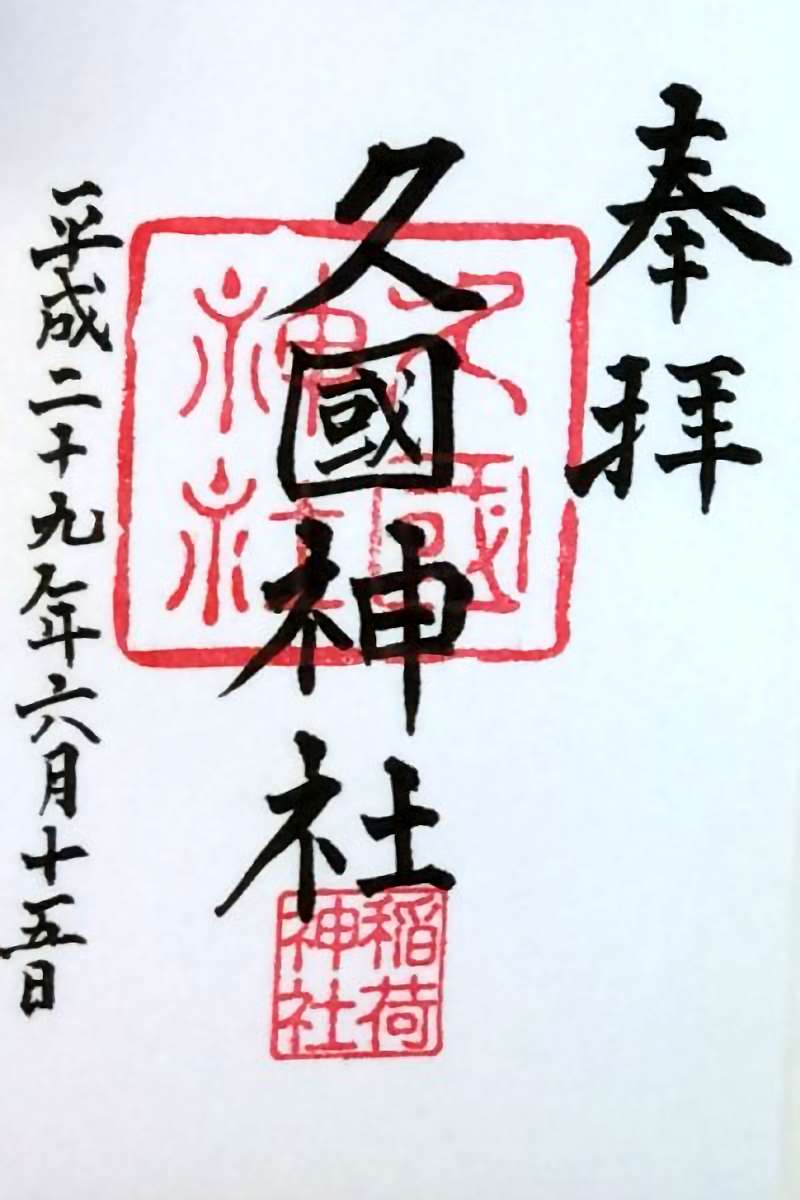 奉拝
久國神社
平成二十九年六月十五日
久國
神社
稲荷
神社